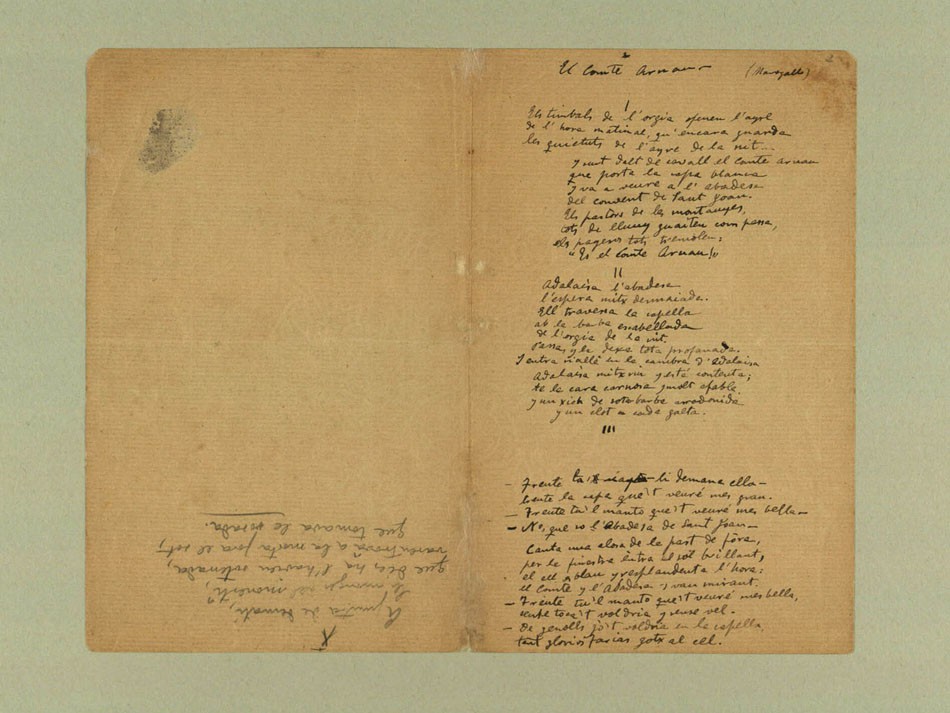 2
El Comte Arnau
(Maragall)
I
Els timbals de l'orgia omenen l'ayre
de l'hora matinal, qu'encara guarda
les quietuts de l'ayre de la nit...
Y surt dalt de cavall el Comte Arnau
que porta la capa blanca
y va a veure a l'abadesa
del convent de Sant Joan.
Els pastors de les montanyes,
tots de lluny guaiten com passa,
els pagesos tots tremolen:
"Es el Comte Arnau!"
II
Adalaisa l'abadesa
l'espera mitx desmaiada.
Ell travessa la capella
ab la barba escabellada
de l'orgia de la nit.
Passa, y la dexa tota profanada.
Y entra allá en la cambra d'Adalaisa
Adalaisa mitx riu y esté contenta;
te la cara carnosa y molt afable
y un xich de sotabarba arrodonida
y un clot a cada galta.
III
— Treute la capa li demana ella—
treute la capa que't veuré mes gran.
— Treute tu'l manto que't veuré mes bella—
— No, que so l'Abadesa de Sant Joan—
Canta una alosa de la part de fòra,
per la finestra entra el sol brillant,
el cel es blau y resplandenta l'hora:
el Comte y l'Abadesa s van mirant.
— Treute tu'l manto que't veuré mes bella,
sense toca't voldria y sense vel.
— De genolls jo't voldria en la capella
tant gloriós farias gotx al cel.
X
A punta de
la monja del monestir,
que Deu ha l'havien soterrada,
varen trova a la morta fora el sot,
que tornava le rosada.